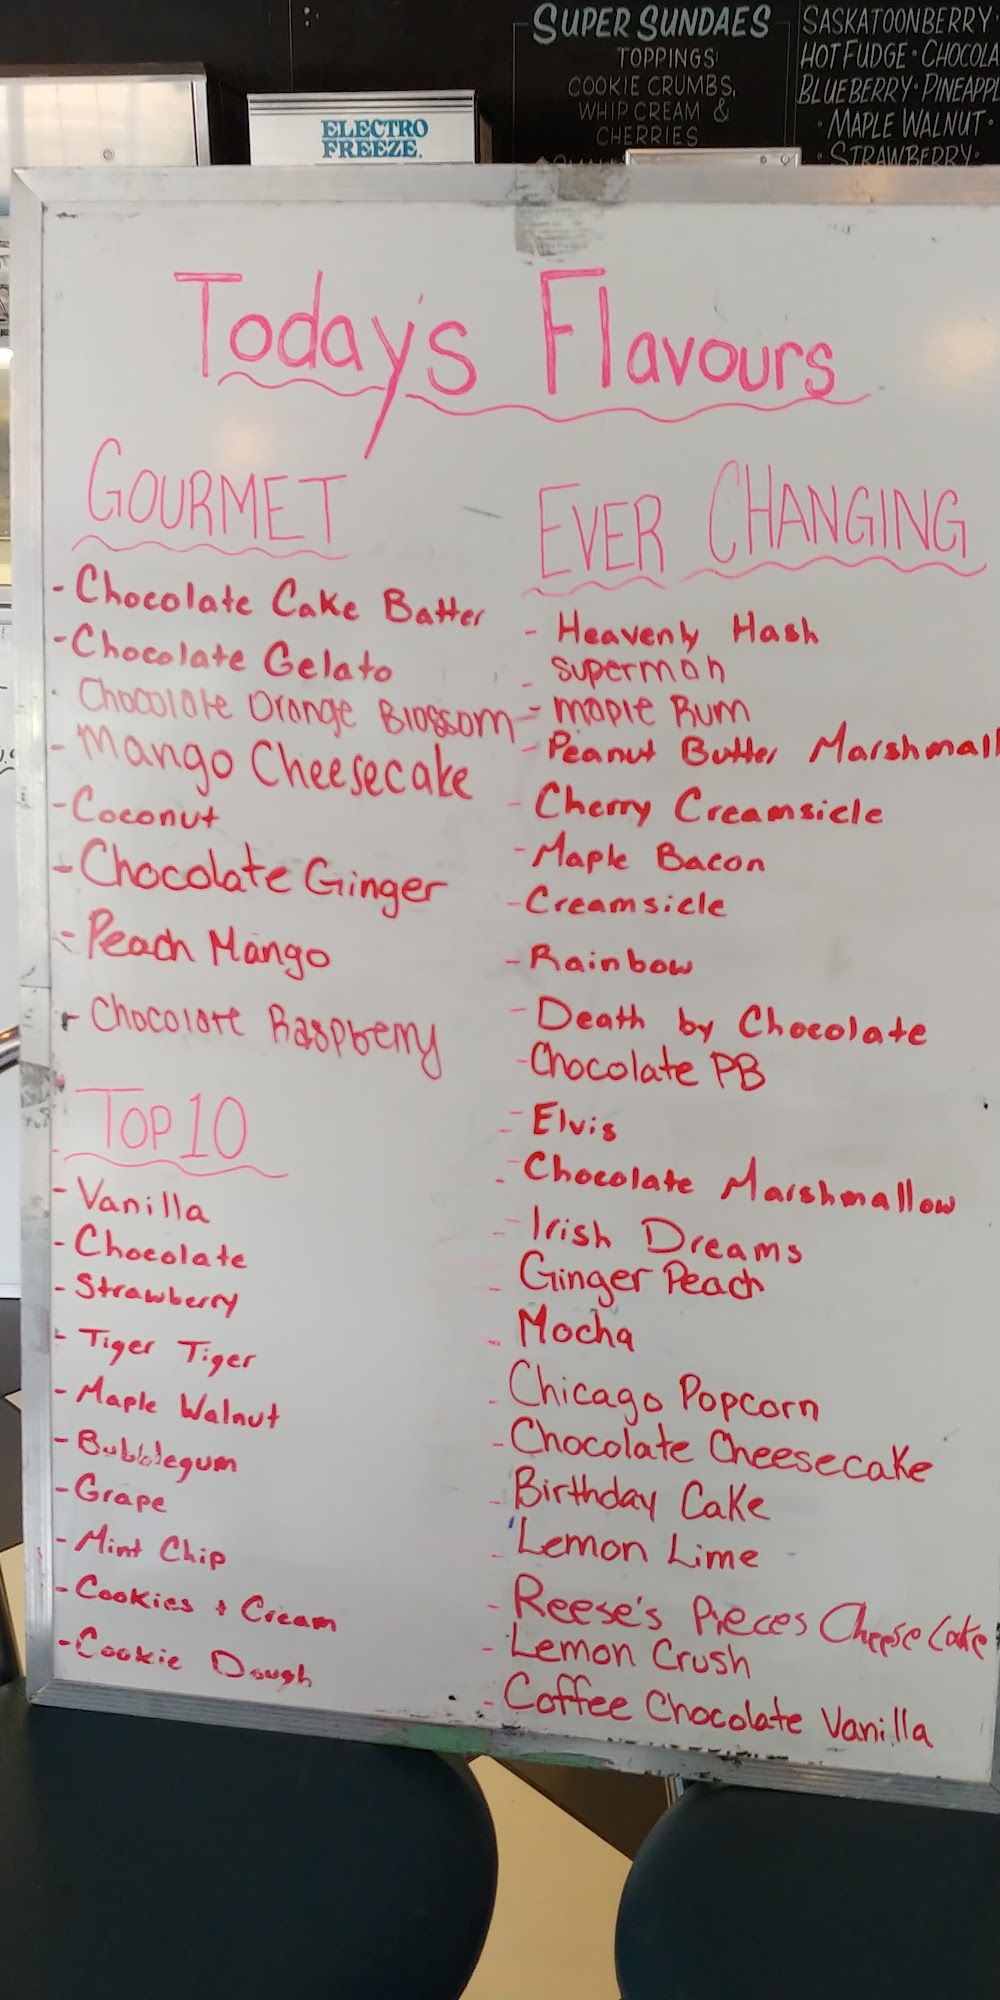 SUPER SUNDAES
TOPPINGS
COOKIE CRUMBS,
WHIP CREAM &
CHERRIES
SASKATOONBERRY
HOT FUDGE · CHOCOLA
BLUEBERRY · PINEAPPL
· MAPLE WALNUT ·
· STRAWBERRY ·
ELECTRO
FREEZE
Today's Flavours
GOURMET
- Chocolate Cake Batter
- Chocolate Gelato
- Chocolate Orange Blossom
- Mango Cheesecake
- Coconut
- Chocolate Ginger
- Peach Mango
- Chocolate Raspberry
TOP 10
- Vanilla
- Chocolate
- Strawberry
- Tiger Tiger
- Maple Walnut
- Bubblegum
- Grape
- Mint Chip
- Cookies + Cream
- Cookie Dough
EVER CHANGING
- Heavenly Hash
- Superman
- Maple Rum
- Peanut Butter Marshmall
- Cherry Creamsicle
- Maple Bacon
- Creamsicle
- Rainbow
- Death by Chocolate
- Chocolate PB
- Elvis
- Chocolate Marshmallow
- Irish Dreams
- Ginger Peach
- Mocha
- Chicago Popcorn
- Chocolate Cheesecake
- Birthday Cake
- Lemon Lime
- Reese's Pieces Cheesecake
- Lemon Crush
- Coffee Chocolate Vanilla